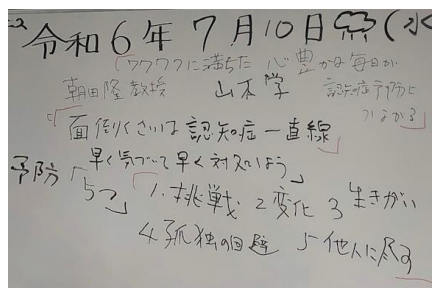 令和6年7月10日 (水
「ワクワクに満ちた 心豊かな毎日が
認知症予防に
つながる」
朝田隆教授 山本学
「面倒くさいは 認知症一直線」
早く気づいて早く対処しよう」
予防「5つ」 1.挑戦 2変化 3生きがい
4孤独の回避 5他人に尽す